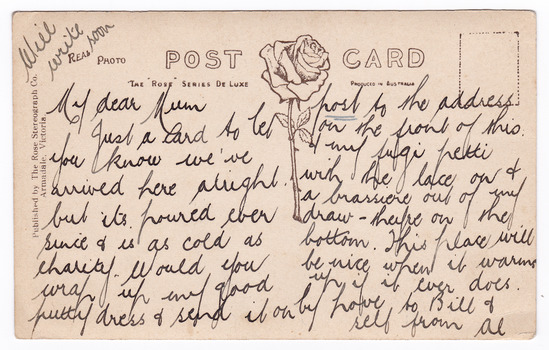 Will
write
soon
REAL PHOTO
POST CARD
THE "ROSE" SERIES DE LUXE
PRODUCED IN AUSTRALIA
Published by The Rose Stereograph Co.
Armadale, Victoria.
My dear Mum
Just a card to let
you know we've
arrived here alright.
but its poured ever
since & is as cold as
charity. Would you
wrap up my good
putty dress & send it on by
post to the address
on the front of this.
& my fugi petti
with the lace on &
a brassiere out of my
draw - theyre on the
bottom. This place will
be nice when it warms
up if it ever does.
love to Bill &
self from Al